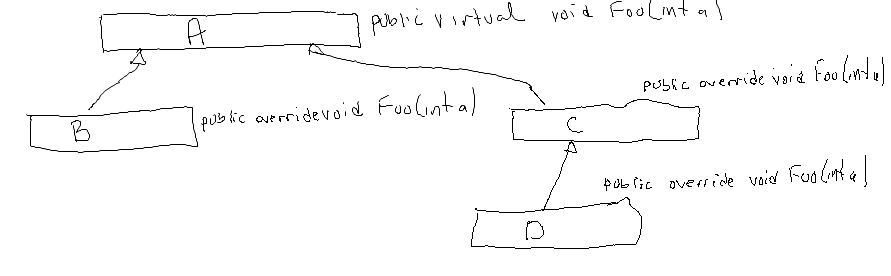 A public virtual void Foo(int a)
public override void Foo(int a)
B public override void Foo(int a)
C
public override void Foo(int a)
D